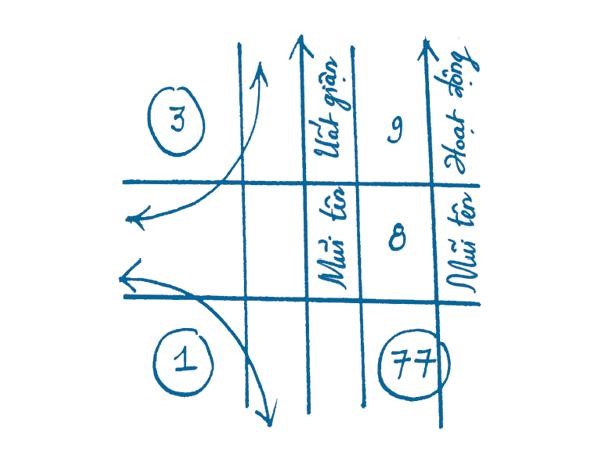 3
Mũi tên Uất giận
9
Mũi tên Hoạt động
8
1
77